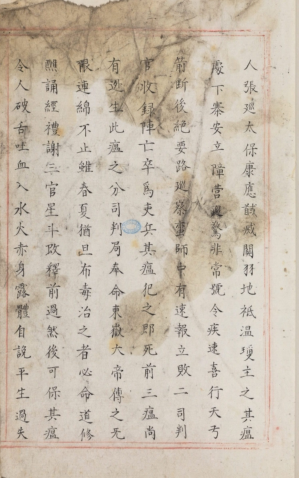 人張廵太保康應骸威關羽地祗温瓊主之其瘟
下寨安立障营非常號令疾速喜行天
斷後絕要路廵察軍師中有速報立敗二司判
官收録陣亡卒為吏兵其瘟犯之即死前三瘟尚
有逃生此瘟之分司判局奉命東嶽大帝傳之无
限連綿不止雖春夏猶旦布毒治之者必命道修
誦經禮謝三官星斗敗釋前過然後可保其瘟
令人破舌吐血入水火赤身露體自說平生過失